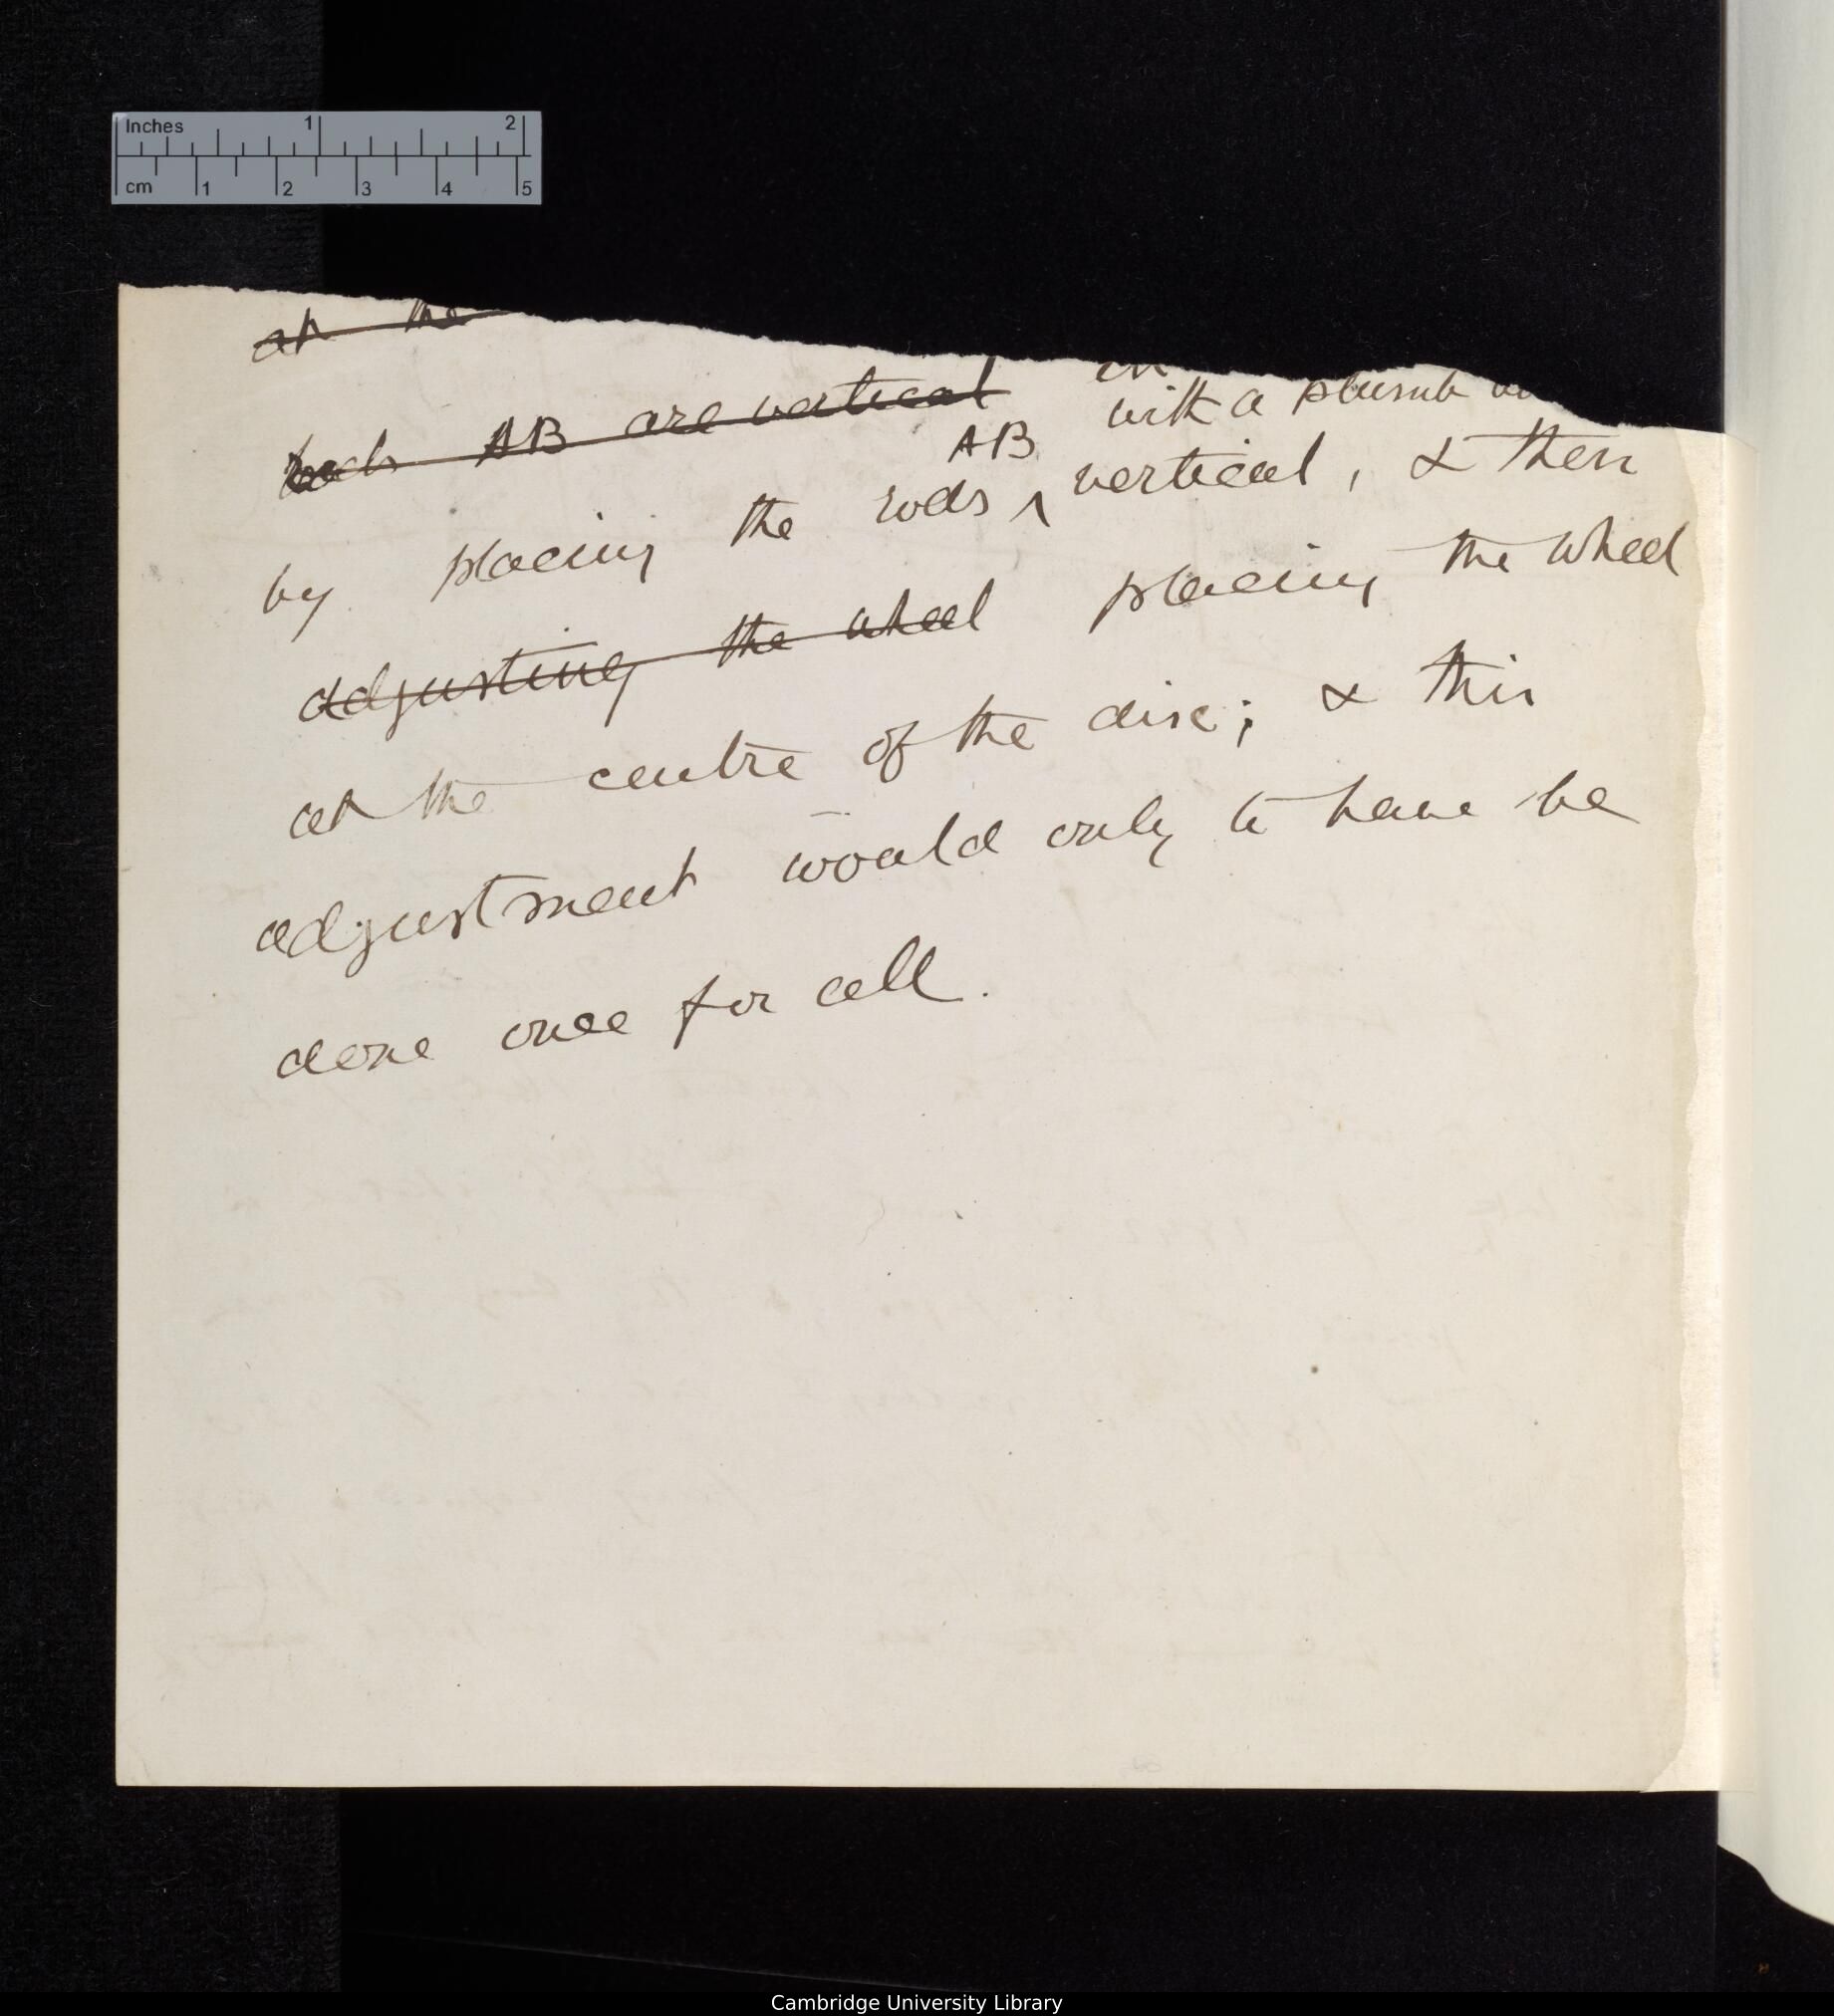 Inches 1 2
cm 1 2 3 4 5
at the
AB are vertical
with a plumb
AB
by placing the rods ^ vertical, & then
adjusting the wheel placing the wheel
at the centre of the disc; & this
adjustment would only to have be
done once for all.
Cambridge University Library